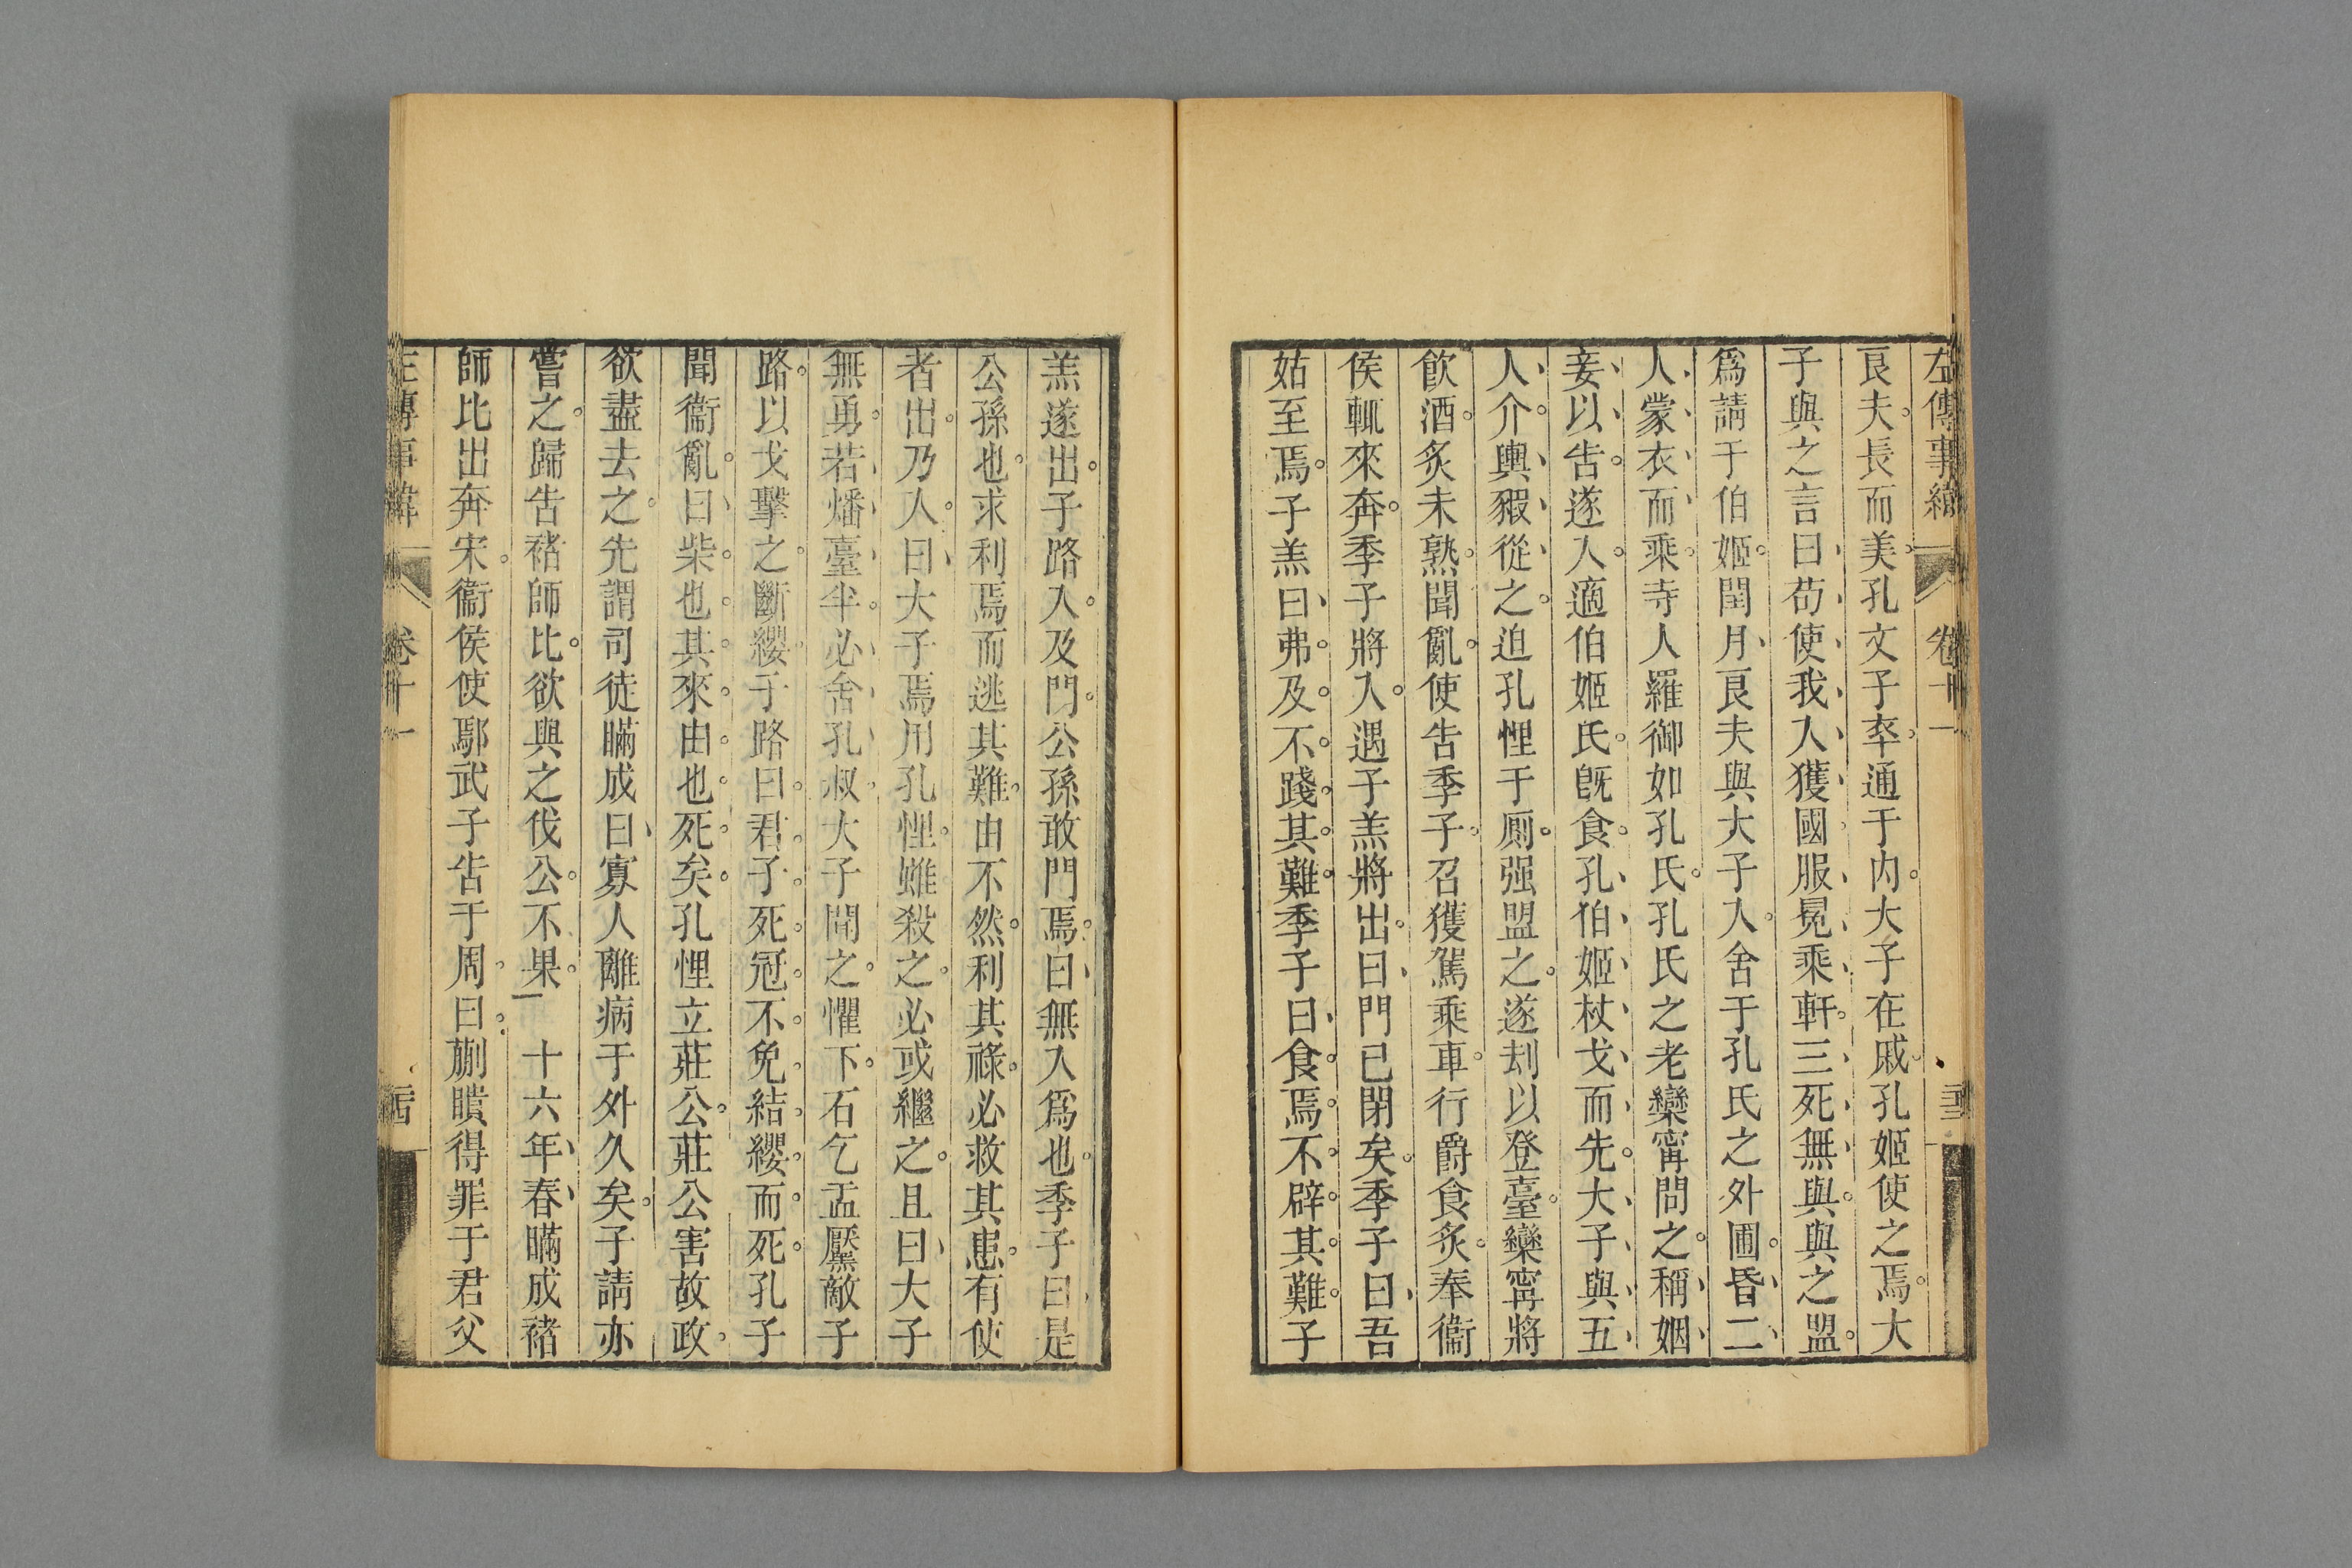 左傳事緯 卷十一
良夫長而美孔文子卒通于内大子在戚孔姬使之焉大
子與之言曰苟使我入獲國服冕乘軒三死無與與之盟
爲請于伯姬閏月良夫與大子入舍于孔氏之外圃昏二
人蒙衣而乘寺人羅御如孔氏孔氏之老欒甯問之稱姻
妾以告遂入適伯姬氏旣食孔伯姬杖戈而先大子與五
人介輿豭從之迫孔悝于厠强盟之遂刦以登臺欒甯將
飮酒炙未熟聞亂使告季子召獲駕乘車行爵食炙奉衞
侯輒來奔季子將入遇子羔將出曰門已閉矣季子曰吾
姑至焉子羔曰弗及不踐其難季子曰食焉不辟其難子
羔遂出子路入及門公孫敢門焉曰無入爲也季子曰是
公孫也求利焉而逃其難由不然利其祿必救其患有使
者出乃入曰大子焉用孔悝雖殺之必或繼之且曰大子
無勇若燔臺半必舍孔叔大子聞之懼下石乞盂黶敵子
路以戈擊之斷纓子路曰君子死冠不免結纓而死孔子
聞衞亂曰柴也其來由也死矣孔悝立莊公莊公害故政
欲盡去之先謂司徒瞞成曰寡人離病于外久矣子請亦
嘗之歸告褚師比欲與之伐公不果 十六年春瞞成褚
師比出奔宋衞侯使鄢武子告于周曰蒯聵得罪于君父
左傳事緯 卷十一